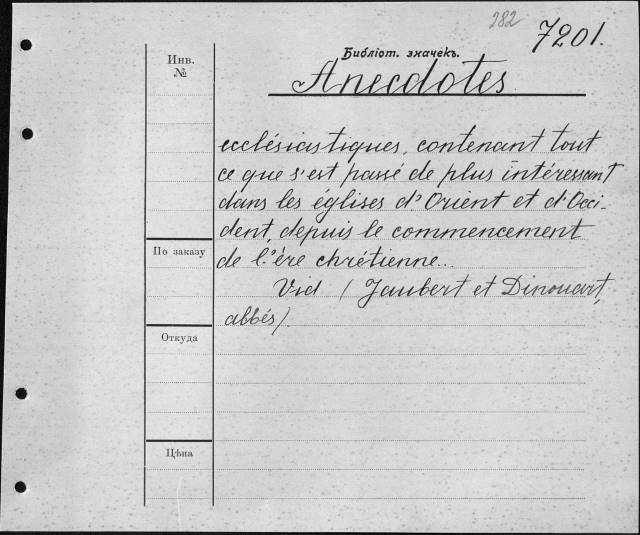 282
7201.
Инв.
№
Библіот. значекъ.
Anecdotes
ecclésiastiques, contenant tout
ce que s'est passé de plus intéressant
dans les églises d'Orient et d'Occi-
dent, depuis le commencement
По заказу
de l'ère chrétienne...
Vid (Jaubert et Dinouart,
abbés).
Откуда
Цѣна